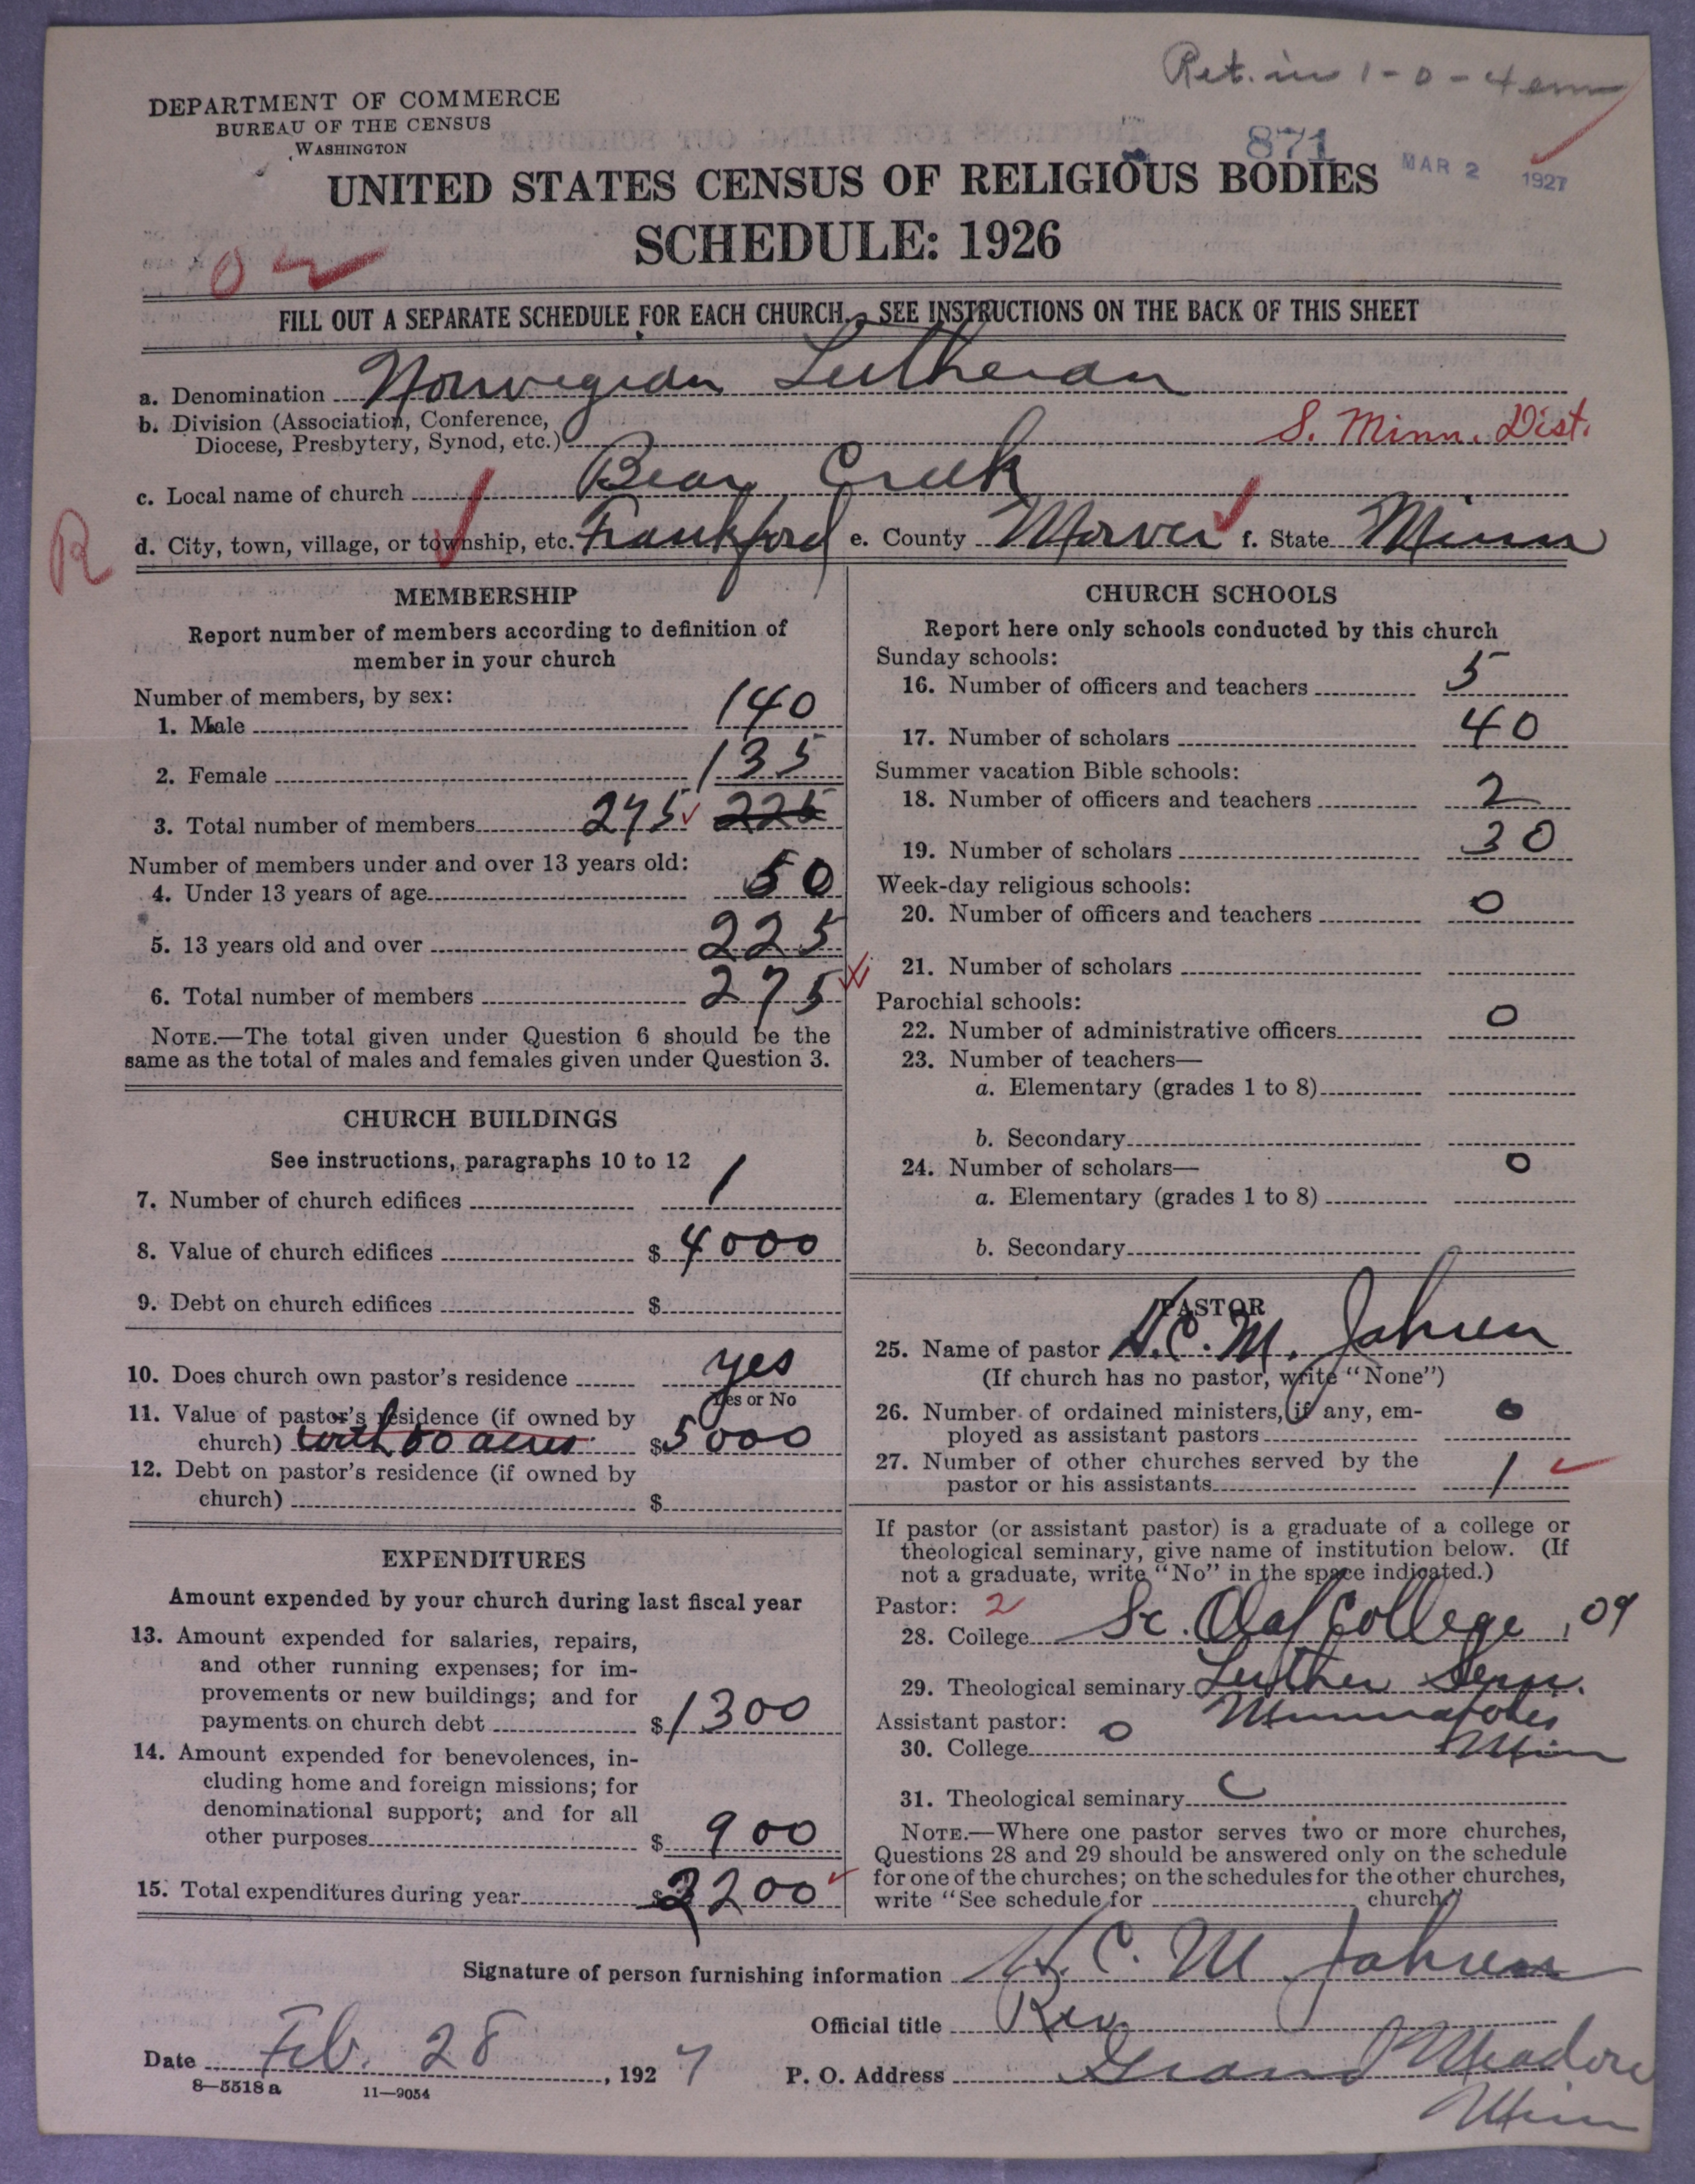 Ret. in 1-0-4 em
DEPARTMENT OF COMMERCE
BUREAU OF THE CENSUS
WASHINGTON
871
MAR 2 1927
UNITED STATES CENSUS OF RELIGIOUS BODIES
SCHEDULE: 1926
FILL OUT A SEPARATE SCHEDULE FOR EACH CHURCH. SEE INSTRUCTIONS ON THE BACK OF THIS SHEET
a. Denomination Norwegian Lutheran
b. Division (Association, Conference,
Diocese, Presbytery, Synod, etc.) S. Minn. Dist.
c. Local name of church Bear Creek
R
d. City, town, village, or township, etc. Frankford e. County Mower f. State Minn
MEMBERSHIP
Report number of members according to definition of
member in your church
Number of members, by sex:
1. Male 140
2. Female 135
3. Total number of members 275 225
Number of members under and over 13 years old:
4. Under 13 years of age 50
5. 13 years old and over 225
6. Total number of members 275
NOTE.—The total given under Question 6 should be the
same as the total of males and females given under Question 3.
CHURCH BUILDINGS
See instructions, paragraphs 10 to 12
7. Number of church edifices 1
8. Value of church edifices $ 4000
9. Debt on church edifices $
10. Does church own pastor's residence yes
Yes or No
11. Value of pastor's residence (if owned by
church) with 80 acres $ 5000
12. Debt on pastor's residence (if owned by
church) $
EXPENDITURES
Amount expended by your church during last fiscal year
13. Amount expended for salaries, repairs,
and other running expenses; for im-
provements or new buildings; and for
payments on church debt $ 1300
14. Amount expended for benevolences, in-
cluding home and foreign missions; for
denominational support; and for all
other purposes $ 900
15. Total expenditures during year $ 2200
CHURCH SCHOOLS
Report here only schools conducted by this church
Sunday schools:
16. Number of officers and teachers 5
17. Number of scholars 40
Summer vacation Bible schools:
18. Number of officers and teachers 2
19. Number of scholars 30
Week-day religious schools:
20. Number of officers and teachers 0
21. Number of scholars
Parochial schools:
22. Number of administrative officers 0
23. Number of teachers—
a. Elementary (grades 1 to 8)
b. Secondary
24. Number of scholars— 0
a. Elementary (grades 1 to 8)
b. Secondary
PASTOR
25. Name of pastor H. C. M. Jahren
(If church has no pastor, write "None")
26. Number of ordained ministers, if any, em-
ployed as assistant pastors 0
27. Number of other churches served by the
pastor or his assistants 1
If pastor (or assistant pastor) is a graduate of a college or
theological seminary, give name of institution below. (If
not a graduate, write "No" in the space indicated.)
Pastor: 2
28. College St. Olaf College, 09
29. Theological seminary Luther Sem.
Minneapolis
Minn
Assistant pastor:
30. College 0
31. Theological seminary
NOTE.—Where one pastor serves two or more churches,
Questions 28 and 29 should be answered only on the schedule
for one of the churches; on the schedules for the other churches,
write "See schedule for church."
Signature of person furnishing information H. C. M Jahren
Official title Rev
Date Feb. 28, 1927 P. O. Address Grand Meadow
Minn
8—5518a 11—9054